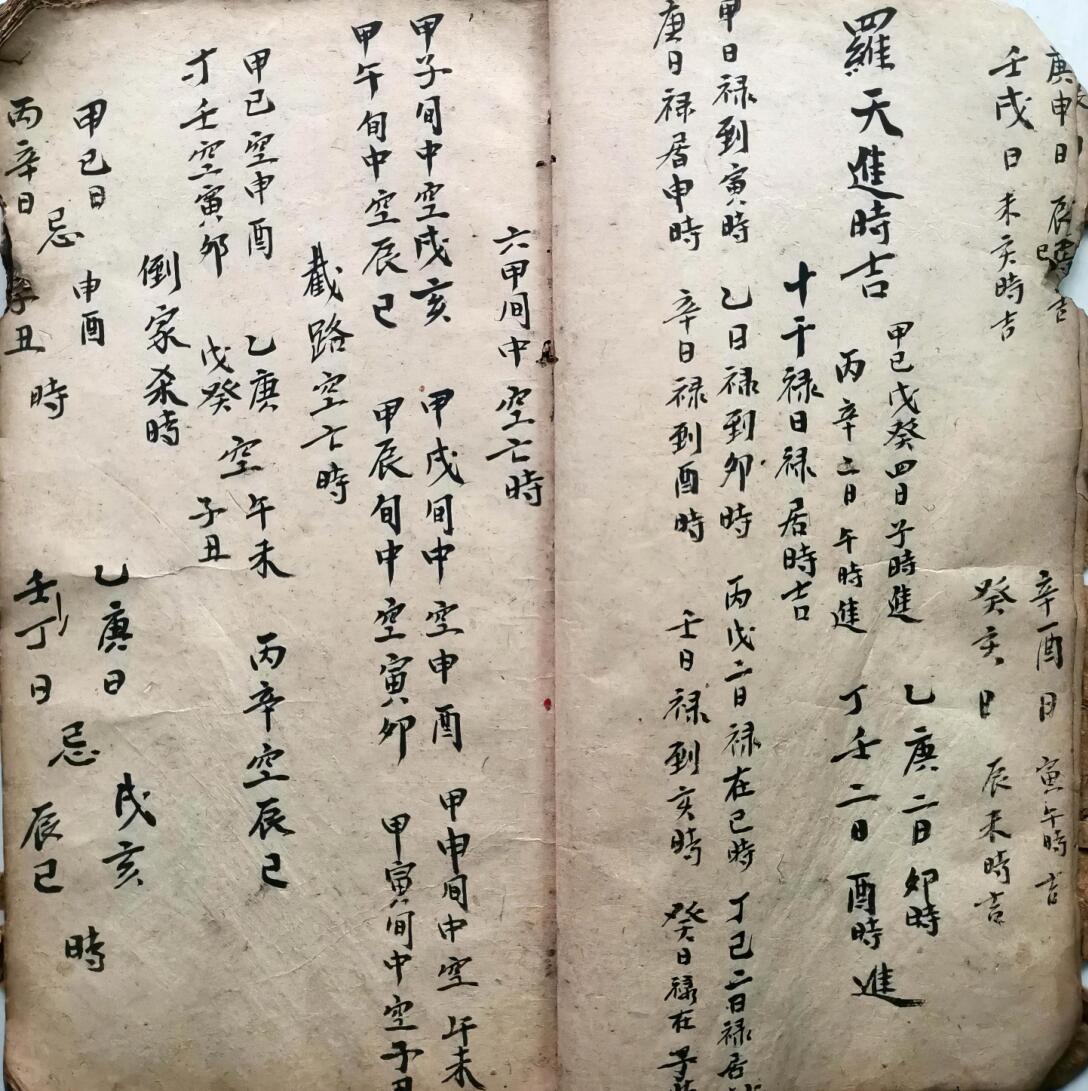 庚申日辰巳時吉 辛酉日寅午時吉
壬戌日未亥時吉 癸亥日辰未時吉
羅天進時吉
甲己戊癸四日子時進 乙庚二日卯時
丙辛二日午時進 丁壬二日酉時進
十干禄日禄居時吉
甲日禄到寅時 乙日禄到卯時 丙戊二日禄在巳時 丁己二日禄居
庚日禄居申時 辛日禄到酉時 壬日禄到亥時 癸日禄在子
六甲间中空亡時
甲子旬中空戌亥 甲戌间中空申酉 甲申间中空午未
甲午旬中空辰巳 甲辰旬中空寅卯 甲寅间中空子丑
截路空亡時
甲己空申酉 乙庚空午未 丙辛空辰巳
丁壬空寅卯 戊癸空子丑
倒家杀時
甲己日忌申酉時 乙庚日忌戌亥時
丙辛日忌子丑時 壬丁日忌辰巳時